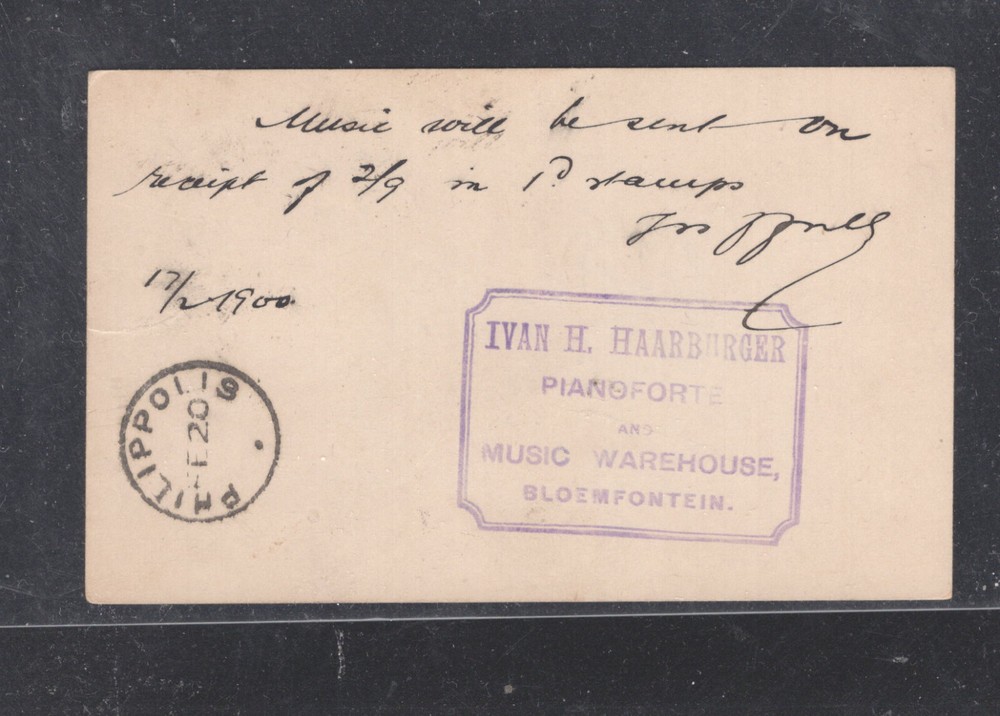 Music will be sent on
receipt of 2/9 in 1D stamps
17/2 1900
IVAN H. HAARBURGER
PIANOFORTE
AND
MUSIC WAREHOUSE,
BLOEMFONTEIN.
PHILIPPOLIS
FE 20